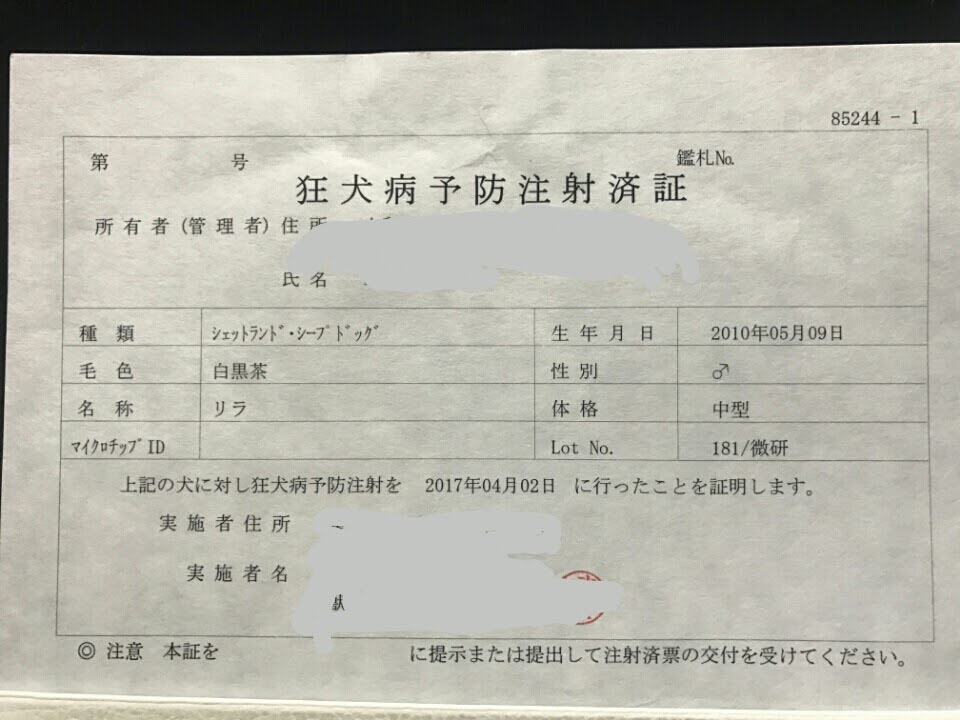 85244 - 1
第 号 鑑札No.
狂犬病予防注射済証
所有者(管理者)住所
氏名
種類 ｼｪｯﾄﾗﾝﾄﾞ･ｼｰﾌﾟﾄﾞｯｸﾞ 生年月日 2010年05月09日
毛色 白黒茶 性別 ♂
名称 リラ 体格 中型
ﾏｲｸﾛﾁｯﾌﾟID Lot No. 181/微研
上記の犬に対し狂犬病予防注射を 2017年04月02日 に行ったことを証明します。
実施者住所
実施者名
◎ 注意 本証を に提示または提出して注射済票の交付を受けてください。